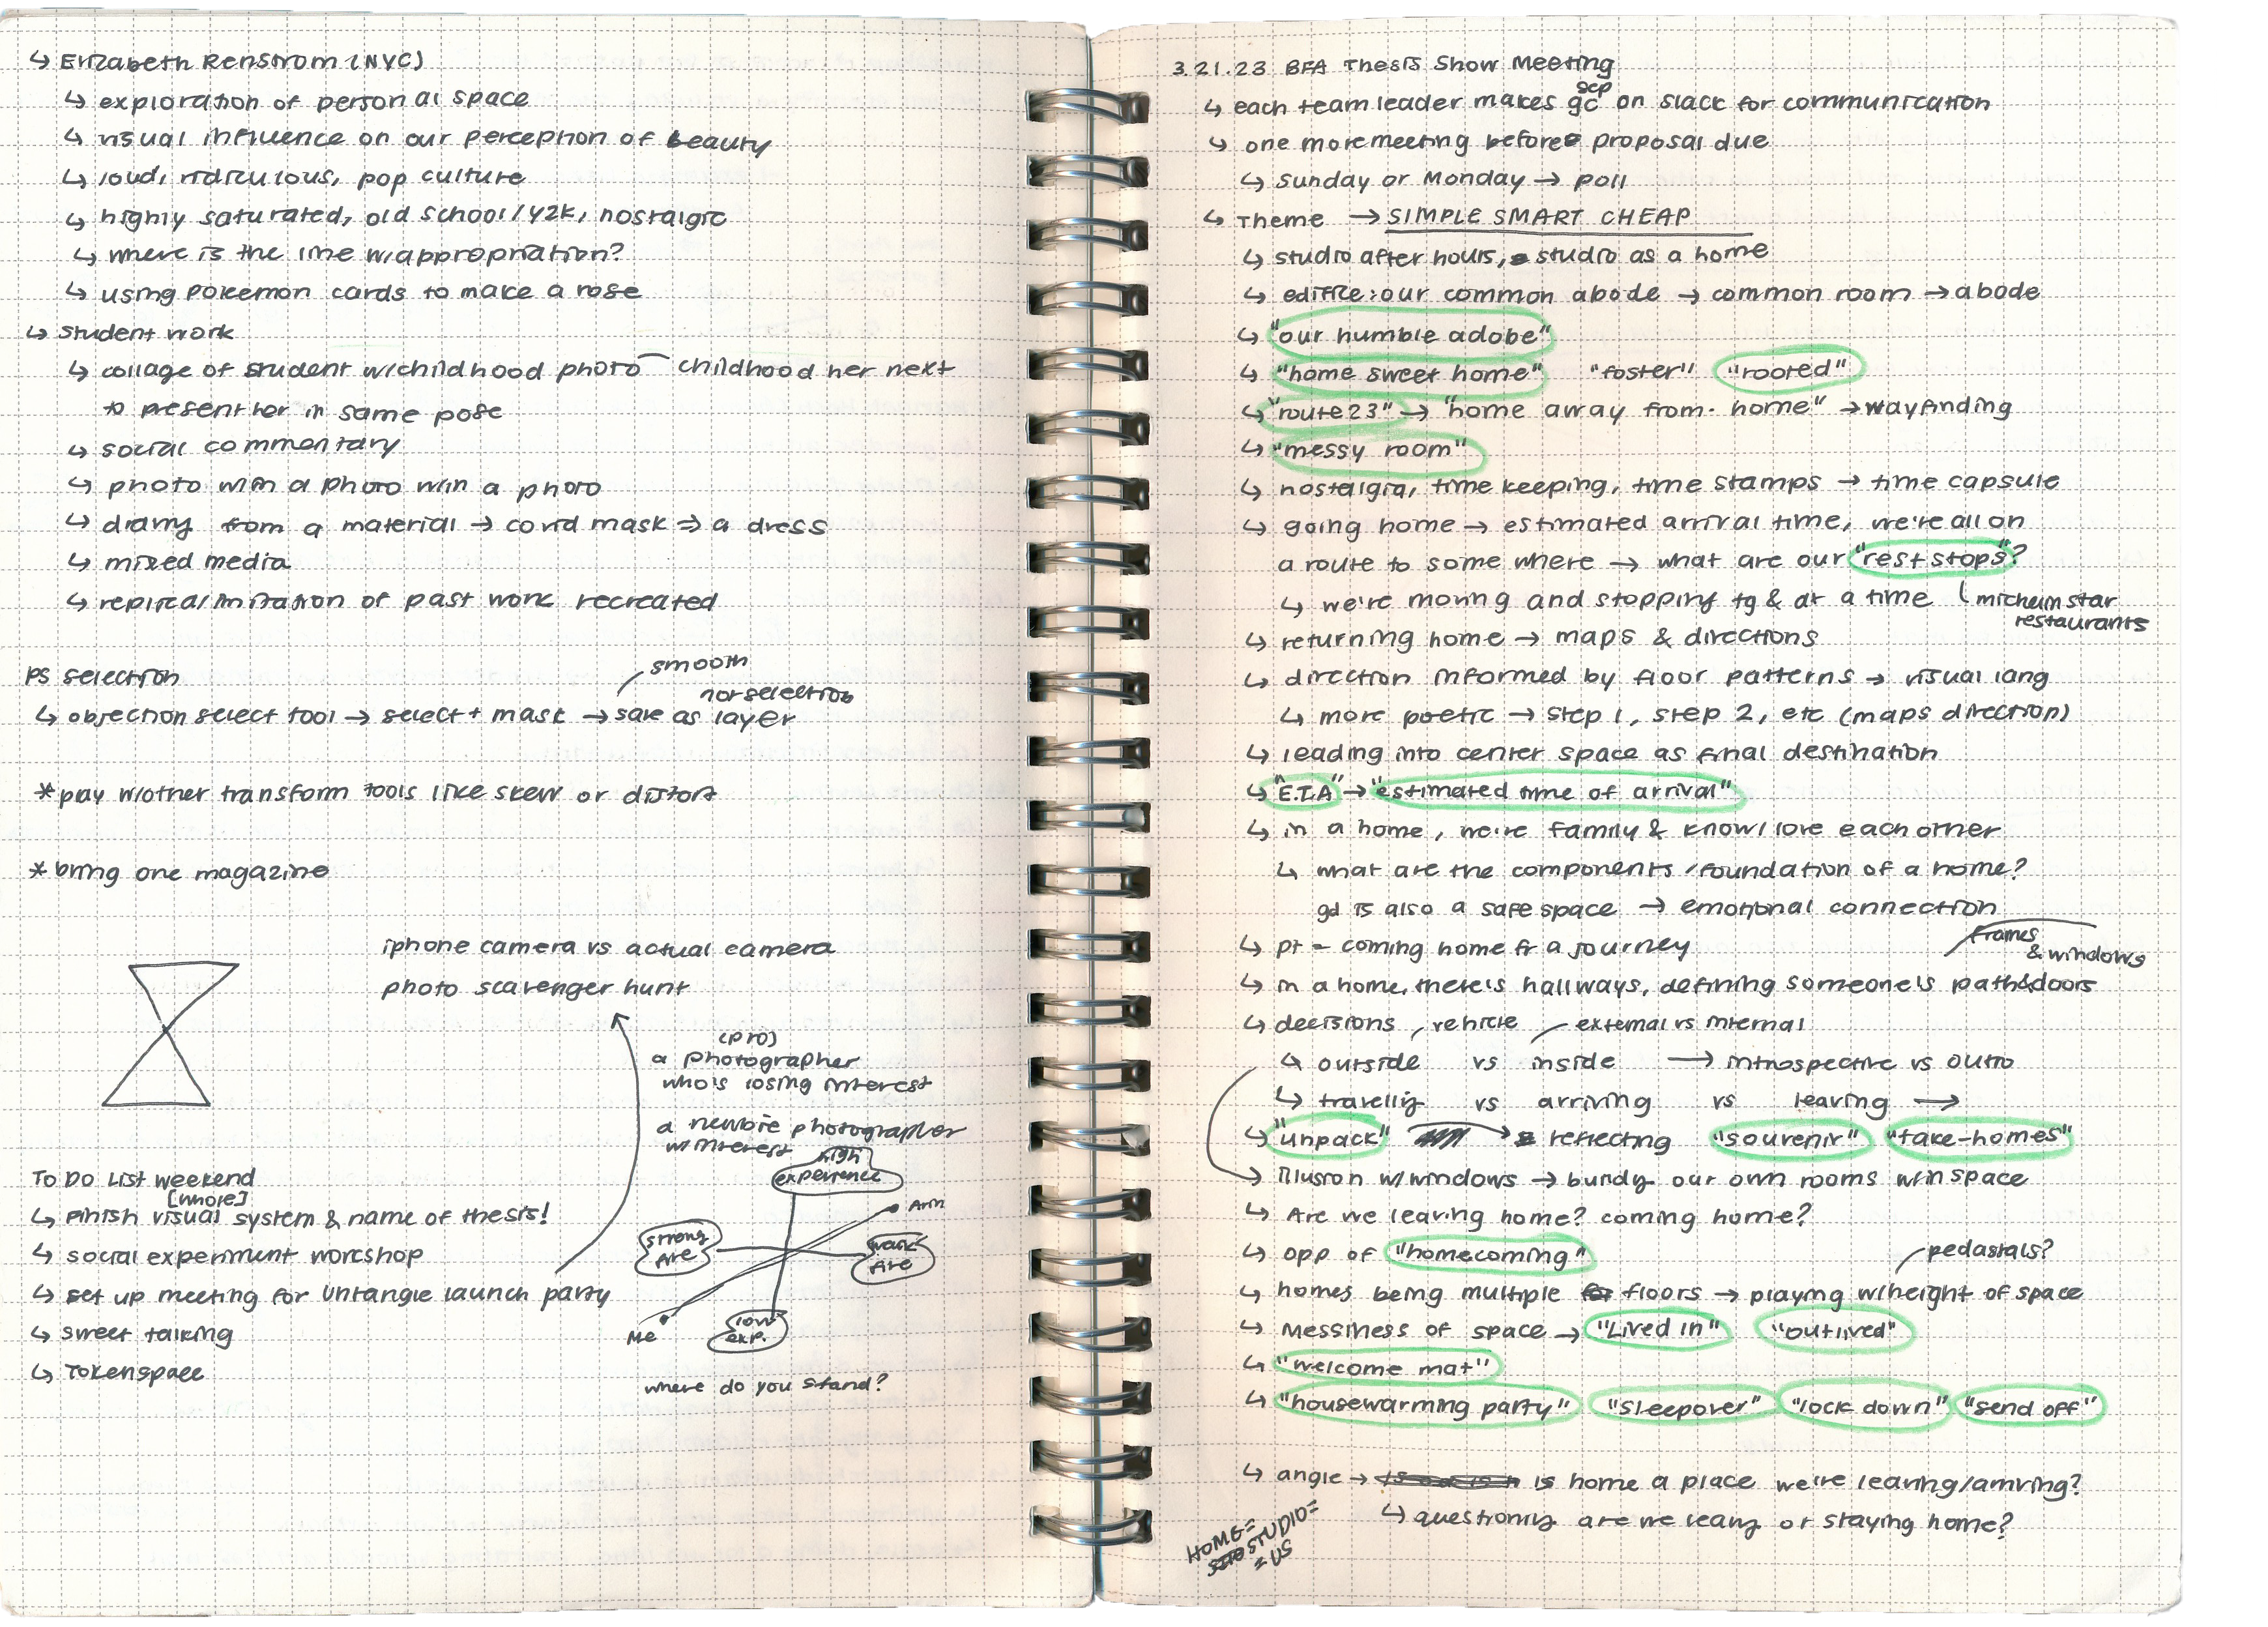 ↳ Elizabeth Renstrom (NYC)
↳ exploration of personal space
↳ visual influence on our perception of beauty
↳ loud, ridiculous, pop culture
↳ highly saturated, old school/y2k, nostalgic
↳ where is the line w/appropriation?
↳ using pokemon cards to make a rose
↳ student work
↳ collage of student w/childhood photo childhood her next
to present her in same pose
↳ social commentary
↳ photo w/in a photo w/in a photo
↳ from a material → covid mask ⇒ a dress
↳ mixed media
↳ replica/imitation of past work recreated
PS selection
smooth
not selection
↳ objection select tool → select + mask → save as layer
*play w/other transform tools like skew or distort
*bring one magazine
iphone camera vs actual camera
photo scavenger hunt
(pro)
a photographer
who's losing interest
a newbie photographer
w/interest
high
experience
Arin
strong
Are
weak
Are
Me
low
exp.
where do you stand?
To Do List weekend
[whole]
↳ Finish visual system & name of thesis!
↳ social experiment workshop
↳ set up meeting for Untangle launch party
↳ sweet talking
↳ Tokenspace
3.21.23 BFA Thesis Show Meeting
sep
↳ each team leader makes gc on slack for communication
↳ one more meeting before proposal due
↳ Sunday or Monday → poll
↳ Theme → SIMPLE SMART CHEAP
↳ studio after hours, studio as a home
↳ edifice: our common abode → common room → abode
↳ "our humble adobe"
↳ "home sweet home" "foster" "rooted"
↳ "route 23" → "home away from home" → wayfinding
↳ "messy room"
↳ nostalgia, time keeping, time stamps → time capsule
↳ going home → estimated arrival time, we're all on
a route to some where → what are our "rest stops"?
↳ we're moving and stopping tg & at a time michelin star
restaurants
↳ returning home → maps & directions
↳ direction informed by floor patterns → visual lang
↳ more poetic → step 1, step 2, etc (maps direction)
↳ leading into center space as final destination
↳ "E.T.A" → "estimated time of arrival"
↳ in a home, we're family & know/love each other
↳ what are the components/foundation of a home?
gd is also a safe space → emotional connection
↳ pt - coming home fr a journey
frames
& windows
↳ in a home, there's hallways, defining someone's path & doors
↳ decisions, vehicle external vs internal
↳ outside vs inside → introspective vs outro
↳ travelling vs arriving vs leaving →
↳ "unpack" reflecting "souvenir" "take-homes"
illusion w/windows → our own rooms w/in space
↳ Are we leaving home? coming home?
↳ opp of "homecoming"
pedastals?
↳ homes being multiple floors → playing w/height of space
↳ Messiness of space → "Lived in" "outlived"
↳ "welcome mat"
↳ "housewarming party" "sleepover" "lock down" "send off"
↳ angle → is home a place we're leaving/arriving?
↳ questioning are we leaving or staying home?
HOME=
STUDIO=
= US